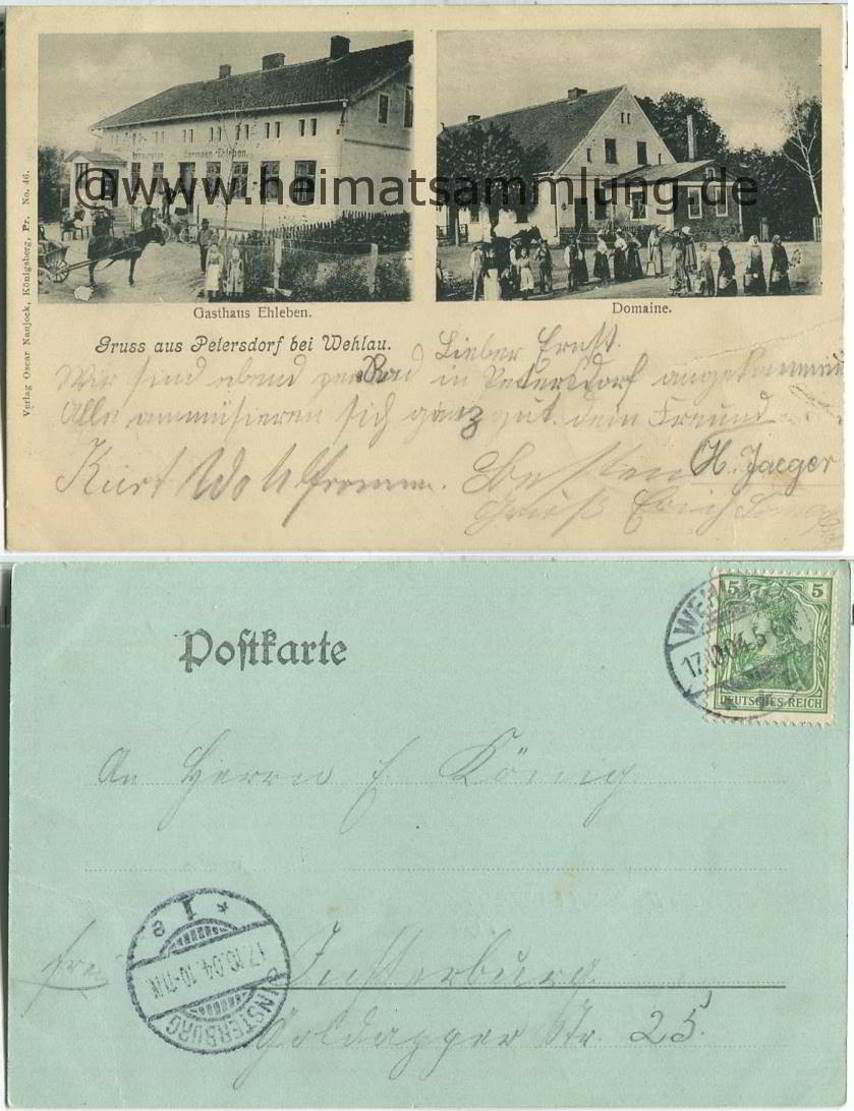 Verlag Oscar Nanjock, Königsberg, Pr. No. 46.
Ehleben.
© www.heimatsammlung.de
Gasthaus Ehleben.
Domaine.
Gruss aus Petersdorf bei Wehlau.
Lieber Ernst.
Wir sind ebend per Rad in Petersdorf angekommen
Alle ammüsieren sich ganz gut. dein Freund
Kurt Wohlfromm. Besten H. Jaeger
Gruß Erich
Postkarte
5 5
DEUTSCHES REICH
WEHLAU
17.10.04. 5-6N.
An Herrn E. König.
1 e
17.10.04. 10-11N.
INSTERBURG
frei
Insterburg.
Goldapper Str. 25.